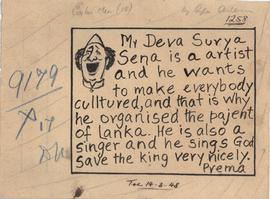 1258
My Deva Surya
Sena is a artist
and he wants
to make everybody
cultured, and that is why
he organised the pajent
of Lanka. He is also a
singer and he sings God
save the king very nicely.
Prema
9179